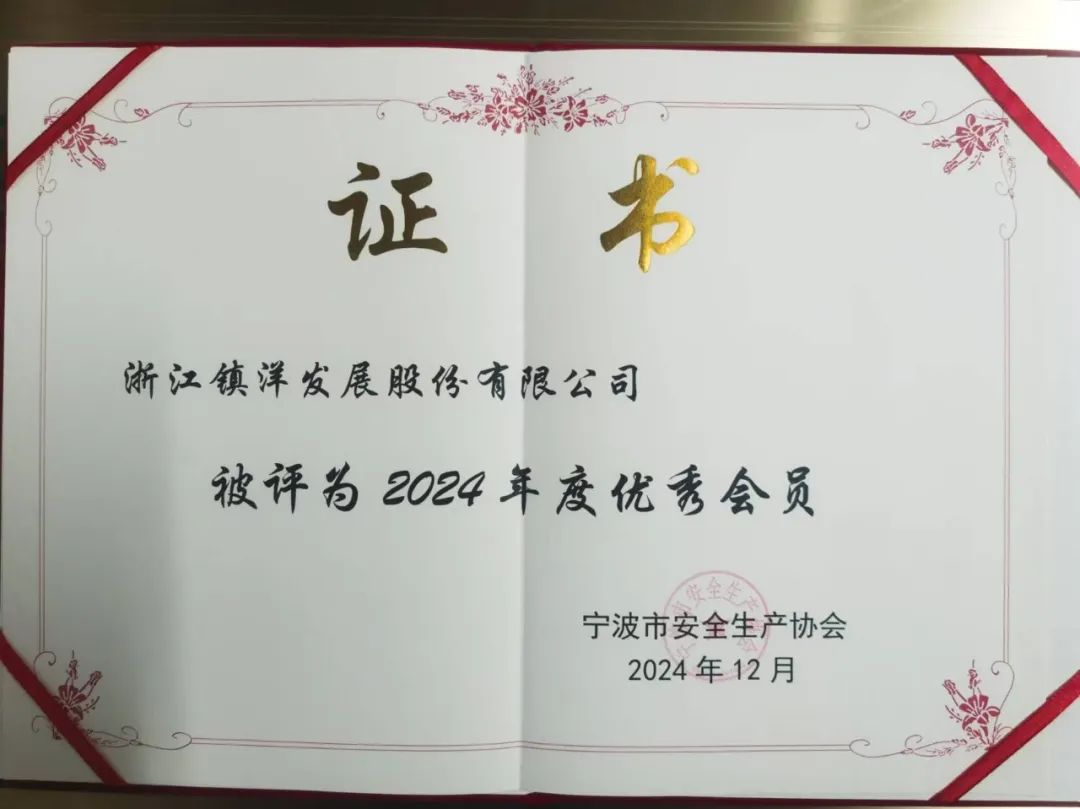 证书
浙江镇洋发展股份有限公司
被评为2024年度优秀会员
宁波市安全生产协会
2024年12月